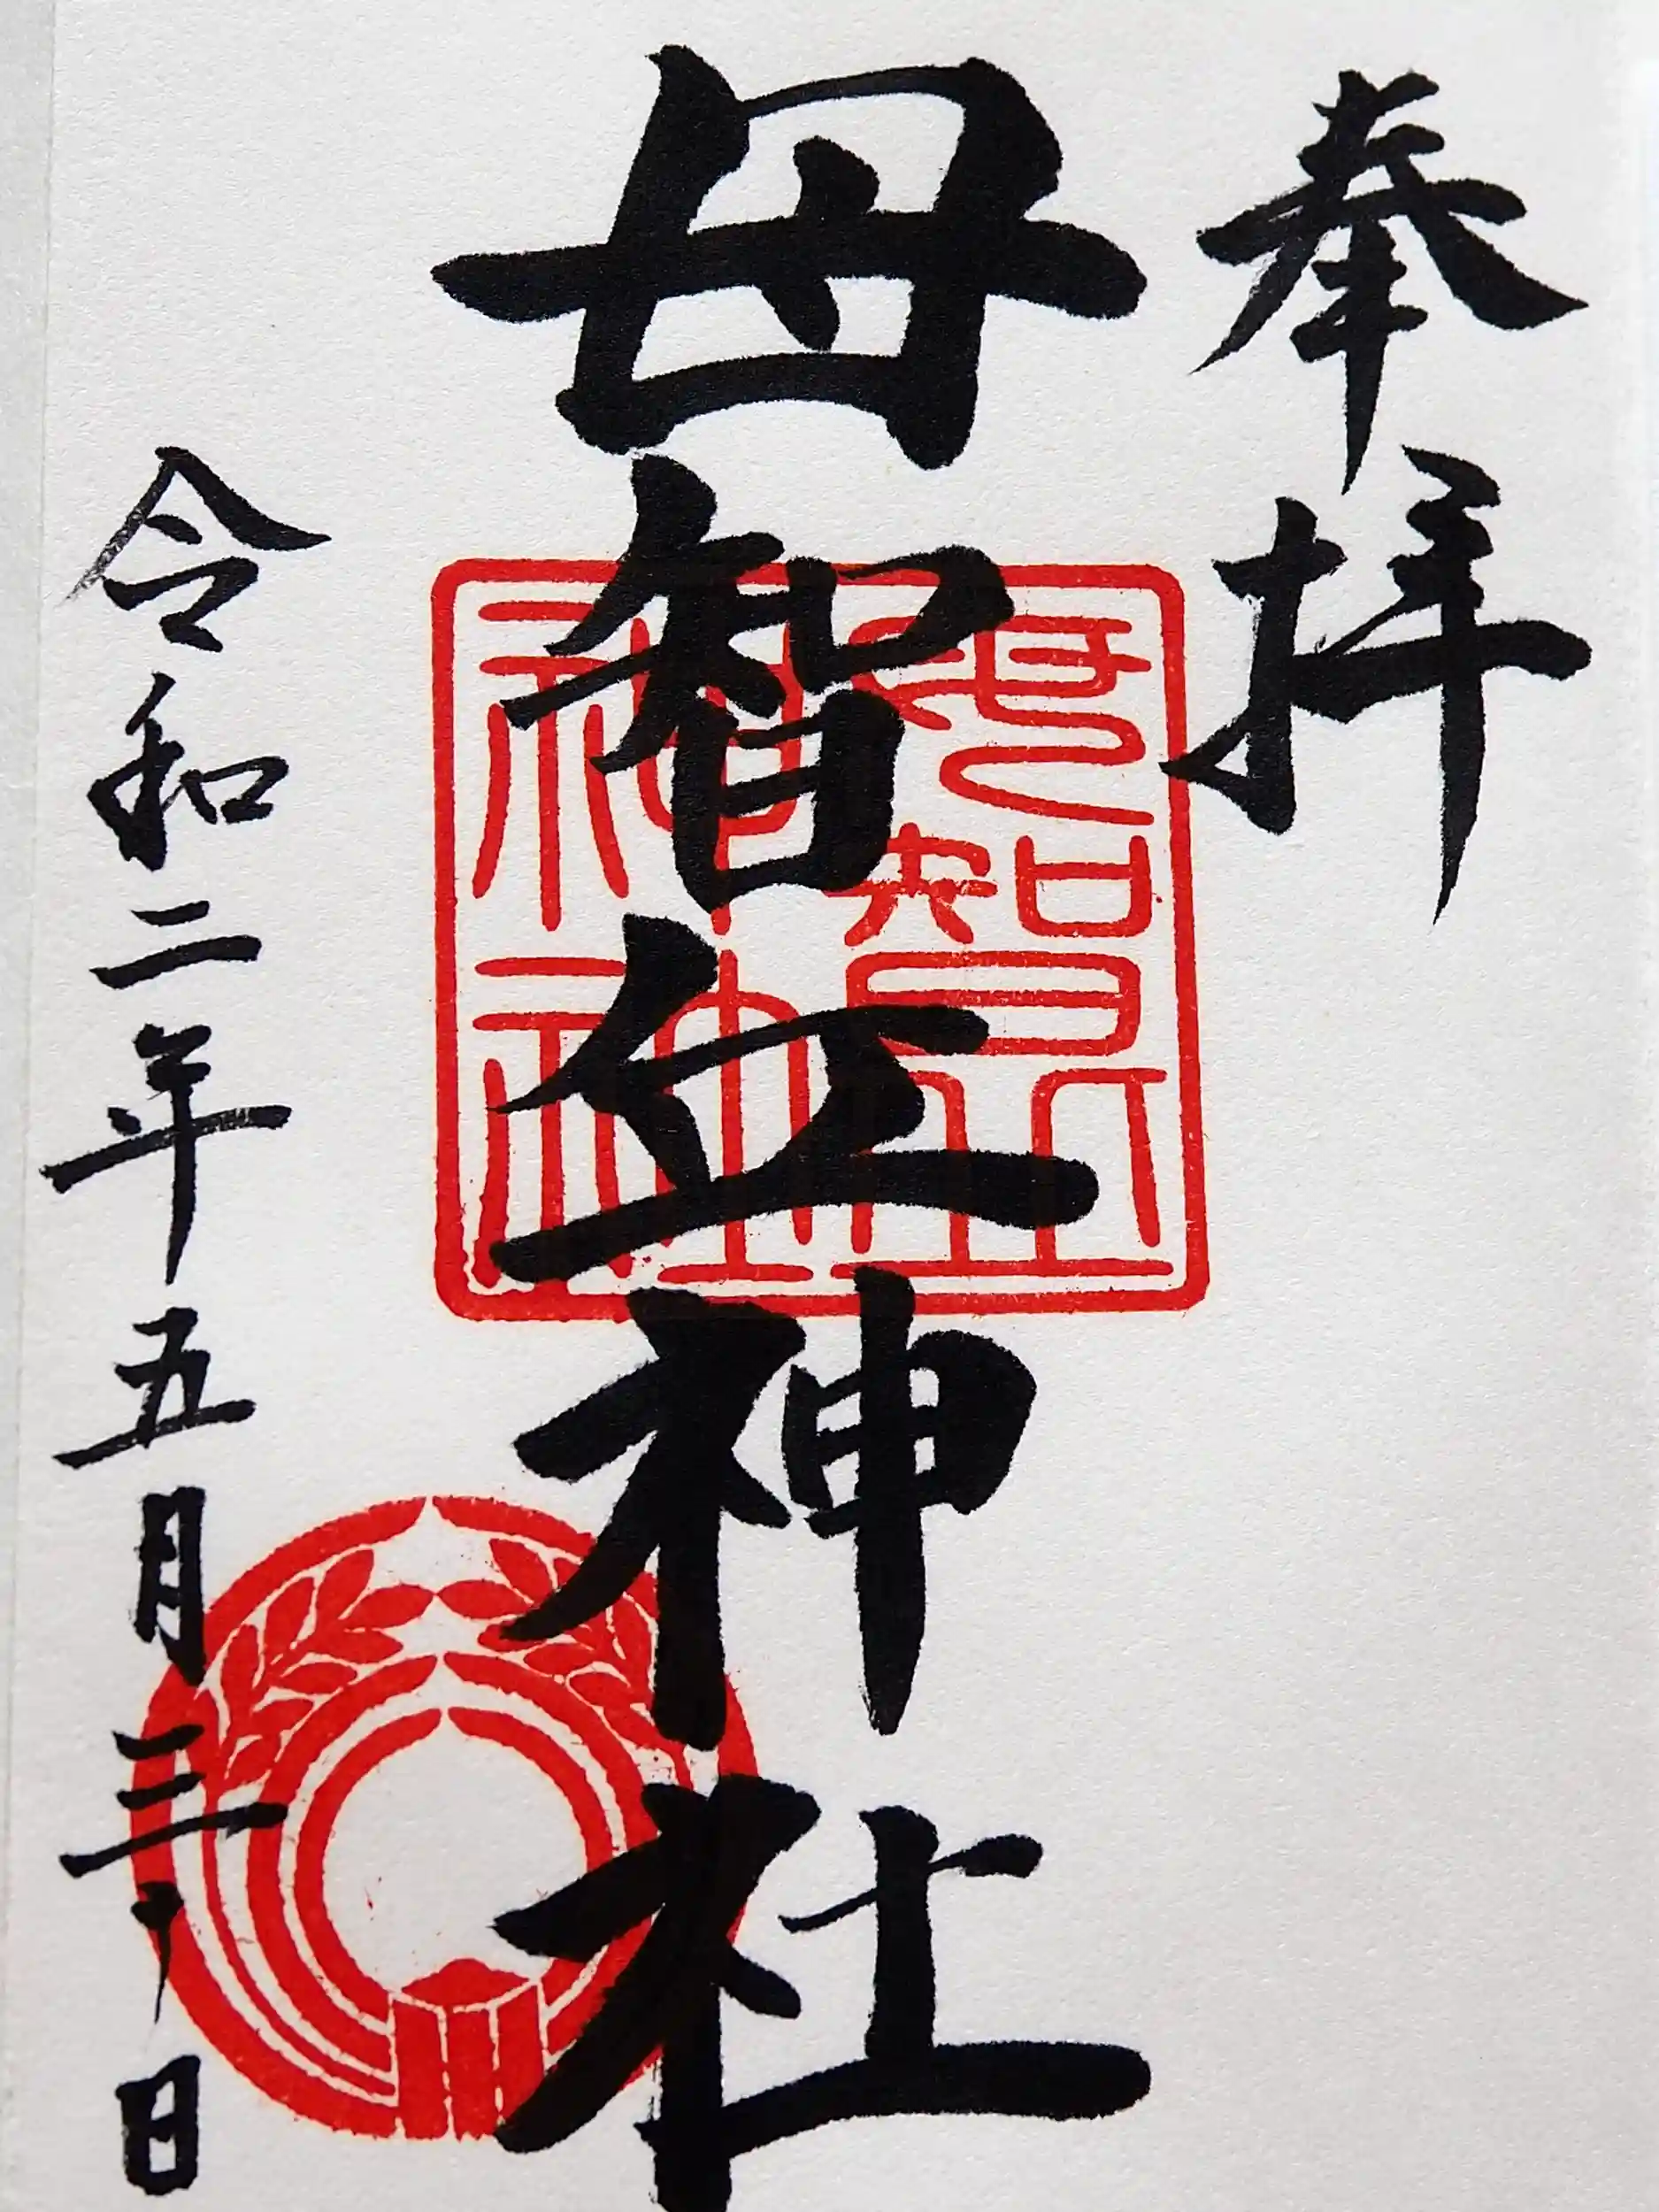 奉拝
母智丘神社
令和二年五月三十日
母智丘
神社